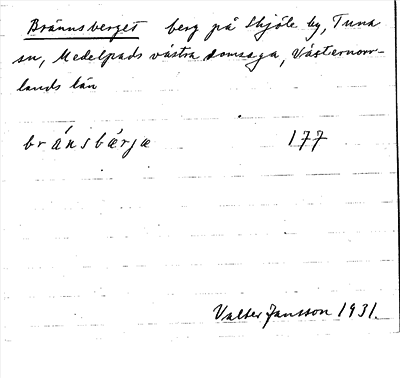 Brännsberget berg på Skjöle by, Tuna
sn, Medelpads västra domsaga, Västernorr-
lands län
bránsbärjæ 177
Valter Jansson 1931.